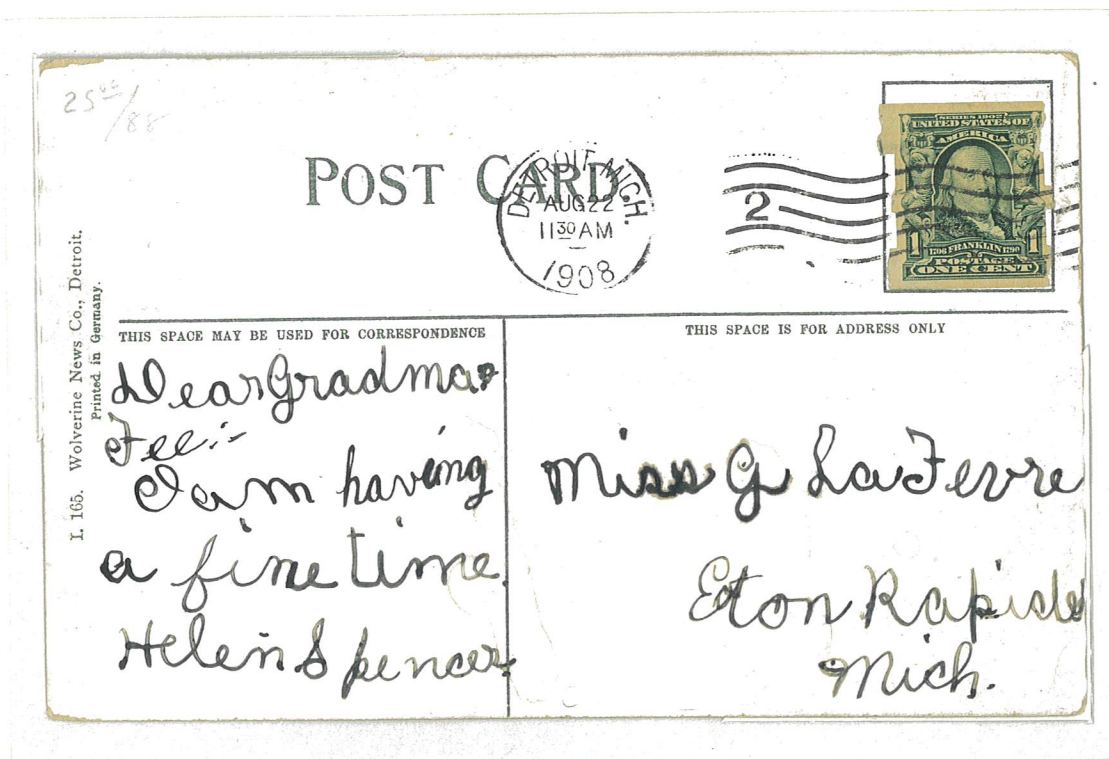 25⁰⁰/88
POST CARD
DETROIT, MICH.
AUG 22
11 30 AM
1908
2
SERIES 1902
UNITED STATES OF
AMERICA
1 1706 FRANKLIN 1790 1
POSTAGE
ONE CENT
I. 165. Wolverine News Co., Detroit.
Printed in Germany.
THIS SPACE MAY BE USED FOR CORRESPONDENCE
Dear Gradma
Fee:-
I am having
a fine time
Helen Spencer.
THIS SPACE IS FOR ADDRESS ONLY
Miss G LaFevre
Eton Rapids
Mich.